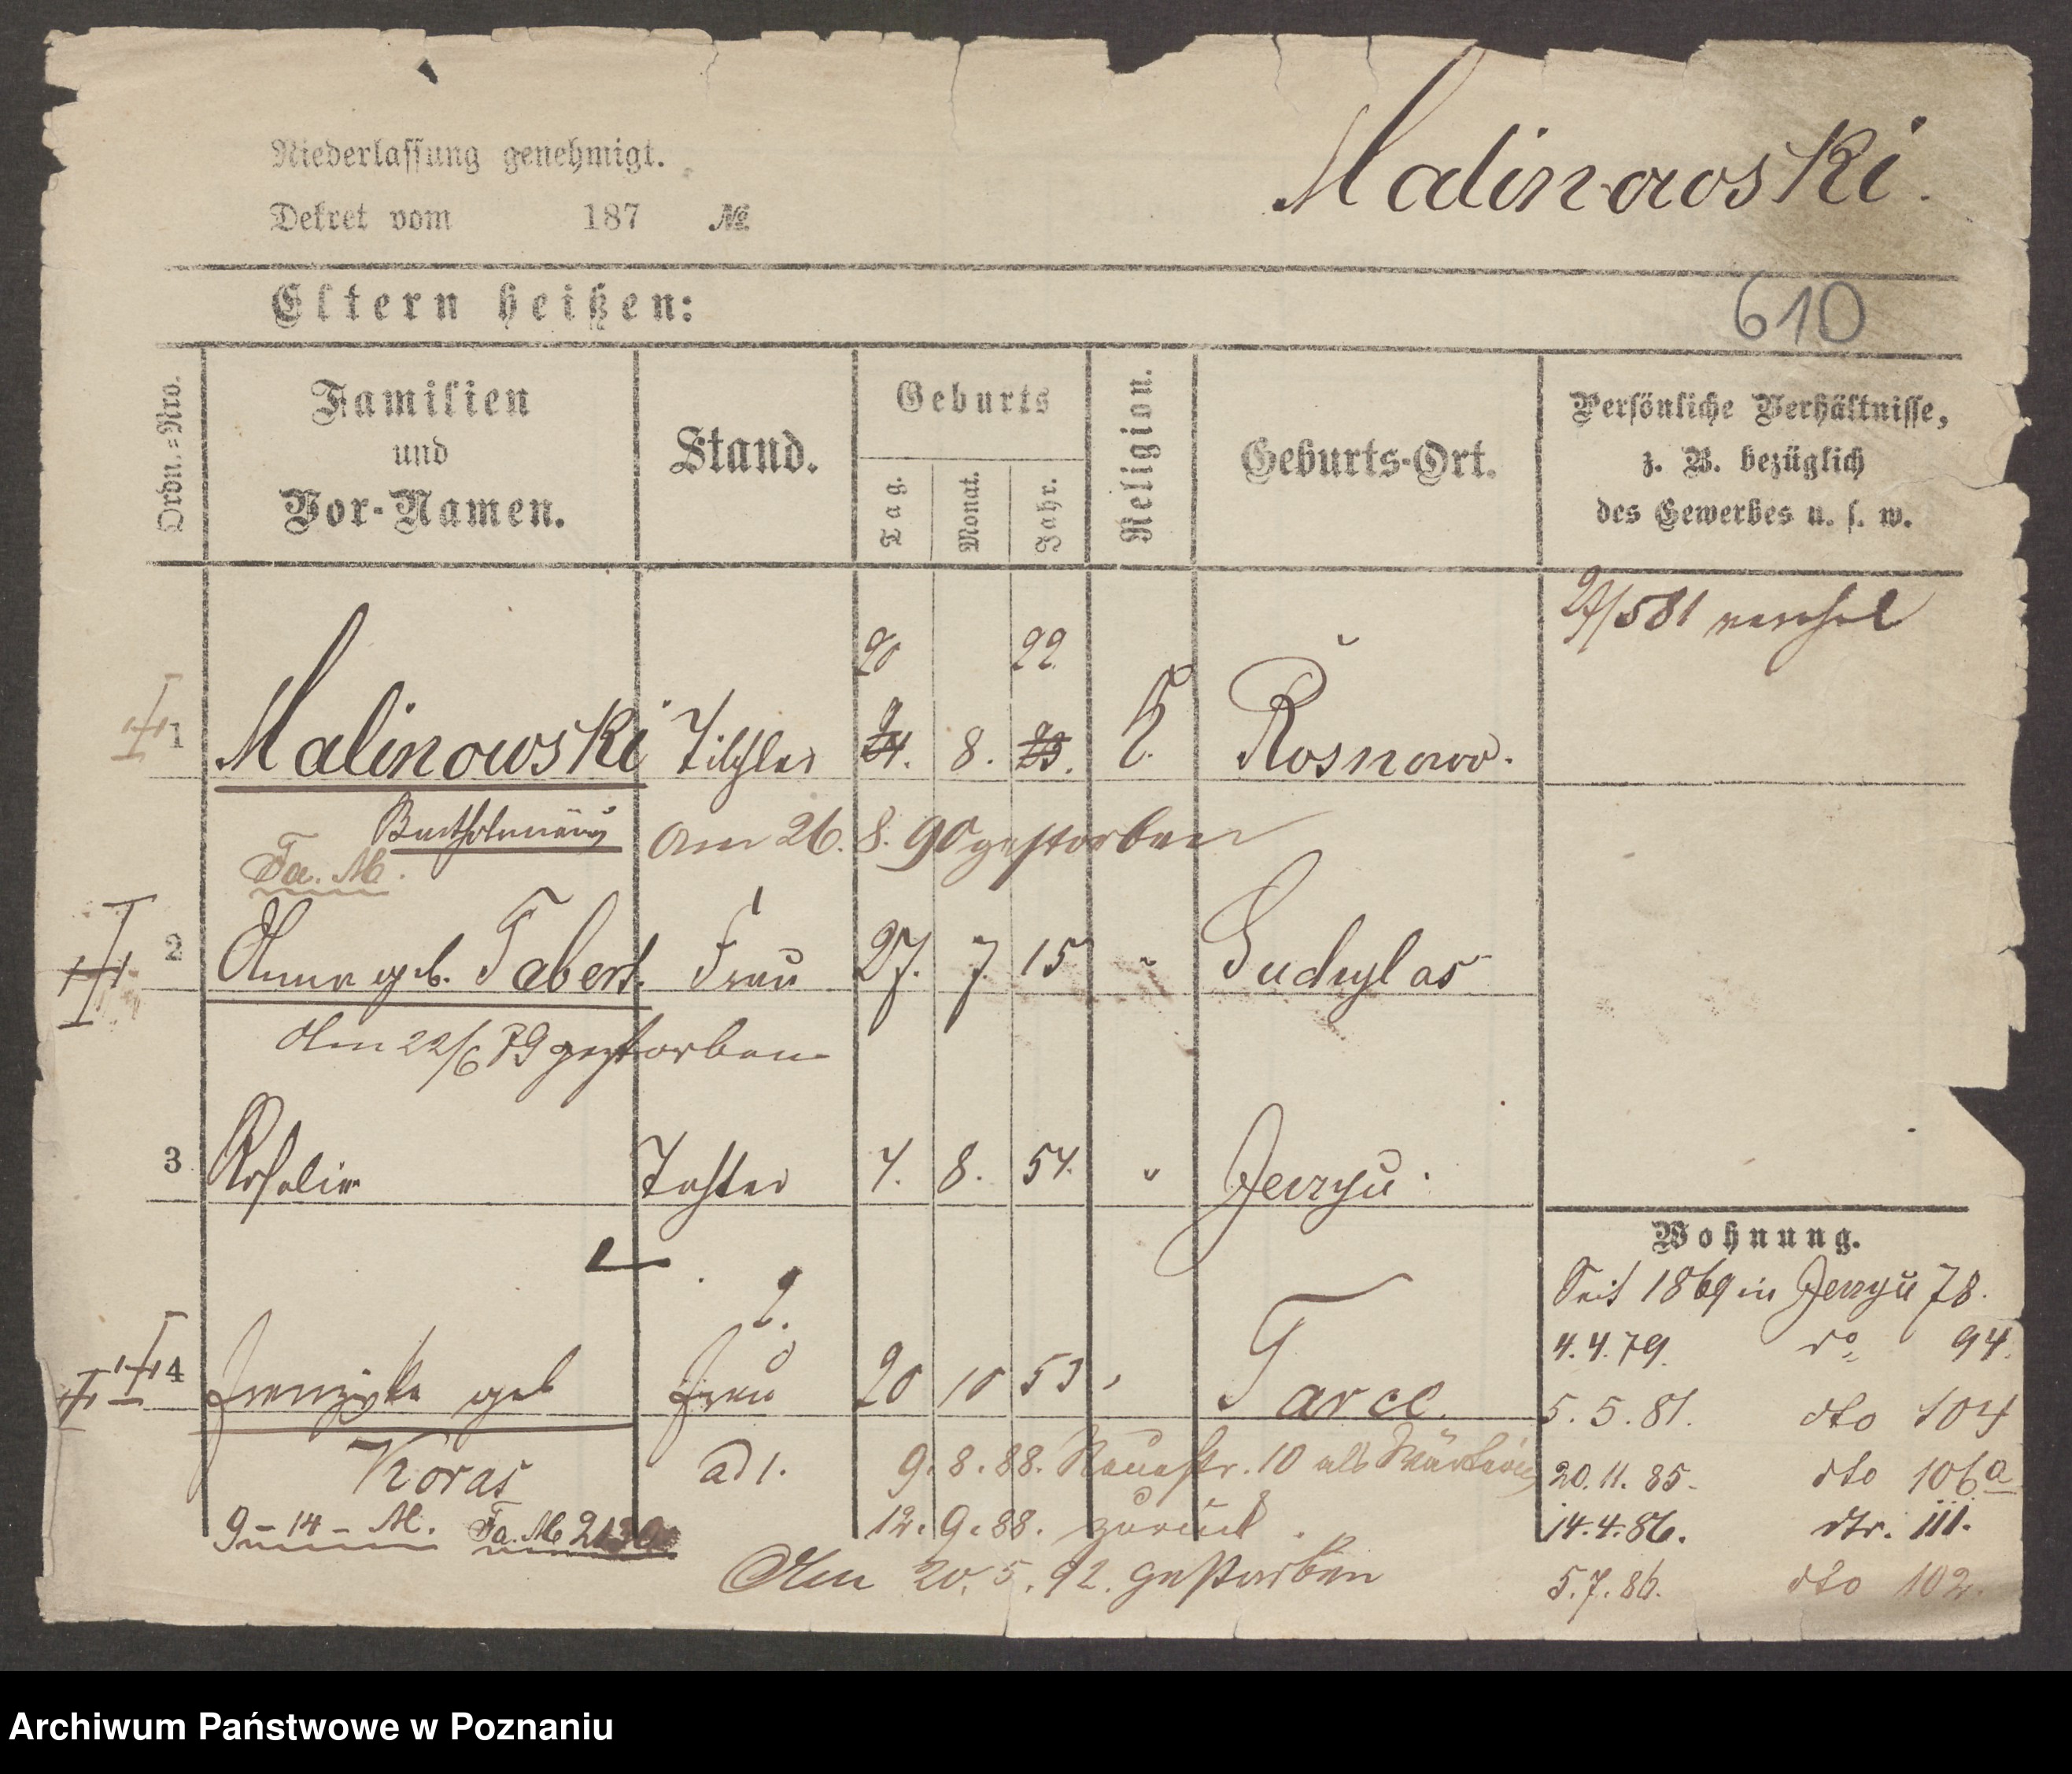 Niederlassung genehmigt.
Dekret vom 187 №
Malinowski.
Eltern heißen:
610
Ordn.=Nro.
Familien
und
Vor-Namen.
Stand.
Geburts
Tag.
Monat.
Jahr.
Religion.
Geburts-Ort.
Persönliche Verhältnisse,
z. B. bezüglich
des Gewerbes u. s. w.
20 22
1 Malinowski Tischler 24. 8. 23. k. Rosnowo.
Bartholomäus Am 26. 8. 90 gestorben
Fa. M.
2 Anna geb. Tabert. Frau 27. 7. 15 "
Am 22/6 79 gestorben
3 Rosalie Tochter 4. 8. 54. " Jerzyu.
2.
4 Franziska geb Frau 20 10 53 " Tarce.
Koras ad 1. 9. 8. 88. Neuestr. 10 als Wärterin
9-14-M. Fa. M 12. 9. 88. zurück.
Am 20. 5. 92. gestorben
Wohnung.
Seit 1869 in Jerzyu 78.
4. 4. 79. do 94.
5. 5. 81. dto 104
20. 11. 85. dto 106a
14. 4. 86. dto. 111.
5. 7. 86. dto 102.
Archiwum Państwowe w Poznaniu